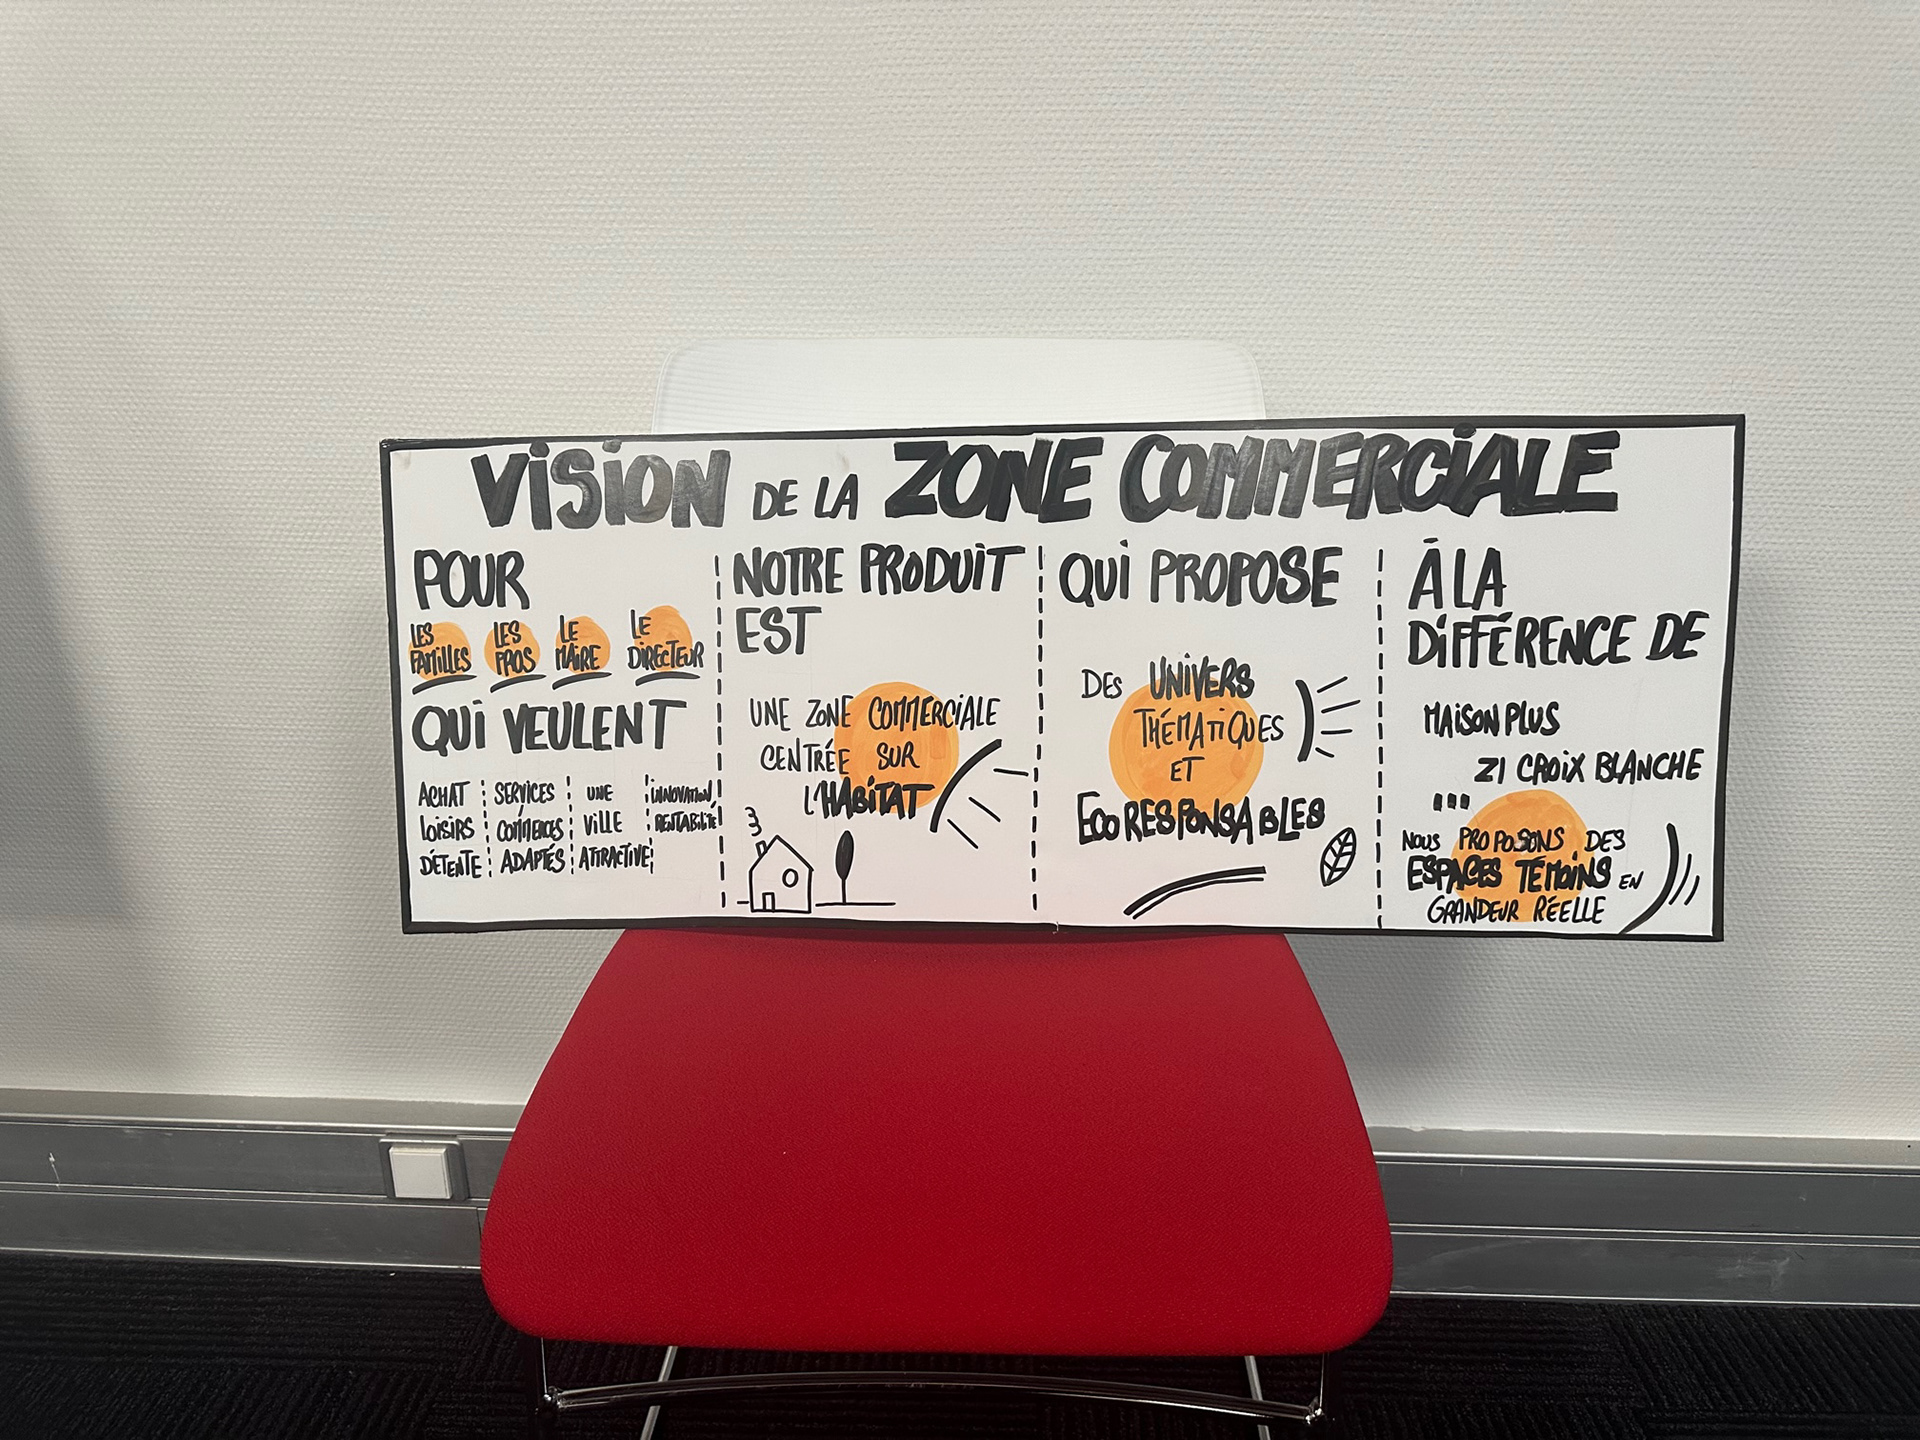 VISION DE LA ZONE COMMERCIALE
POUR
LES LES LE LE
FAMILLES PROS MAIRE DIRECTEUR
QUI VEULENT
ACHAT
LOISIRS
DÉTENTE
SERVICES
COMMERCES
ADAPTÉS
UNE
VILLE
ATTRACTIVE
INNOVATION
RENTABILITÉ
NOTRE PRODUIT
EST
UNE ZONE COMMERCIALE
CENTRÉE SUR
L'HABITAT
QUI PROPOSE
DES UNIVERS
THÉMATIQUES
ET
ECORESPONSABLES
À LA
DIFFÉRENCE DE
MAISON PLUS
ZI CROIX BLANCHE
...
NOUS PROPOSONS DES
ESPACES TÉMOINS EN
GRANDEUR RÉELLE